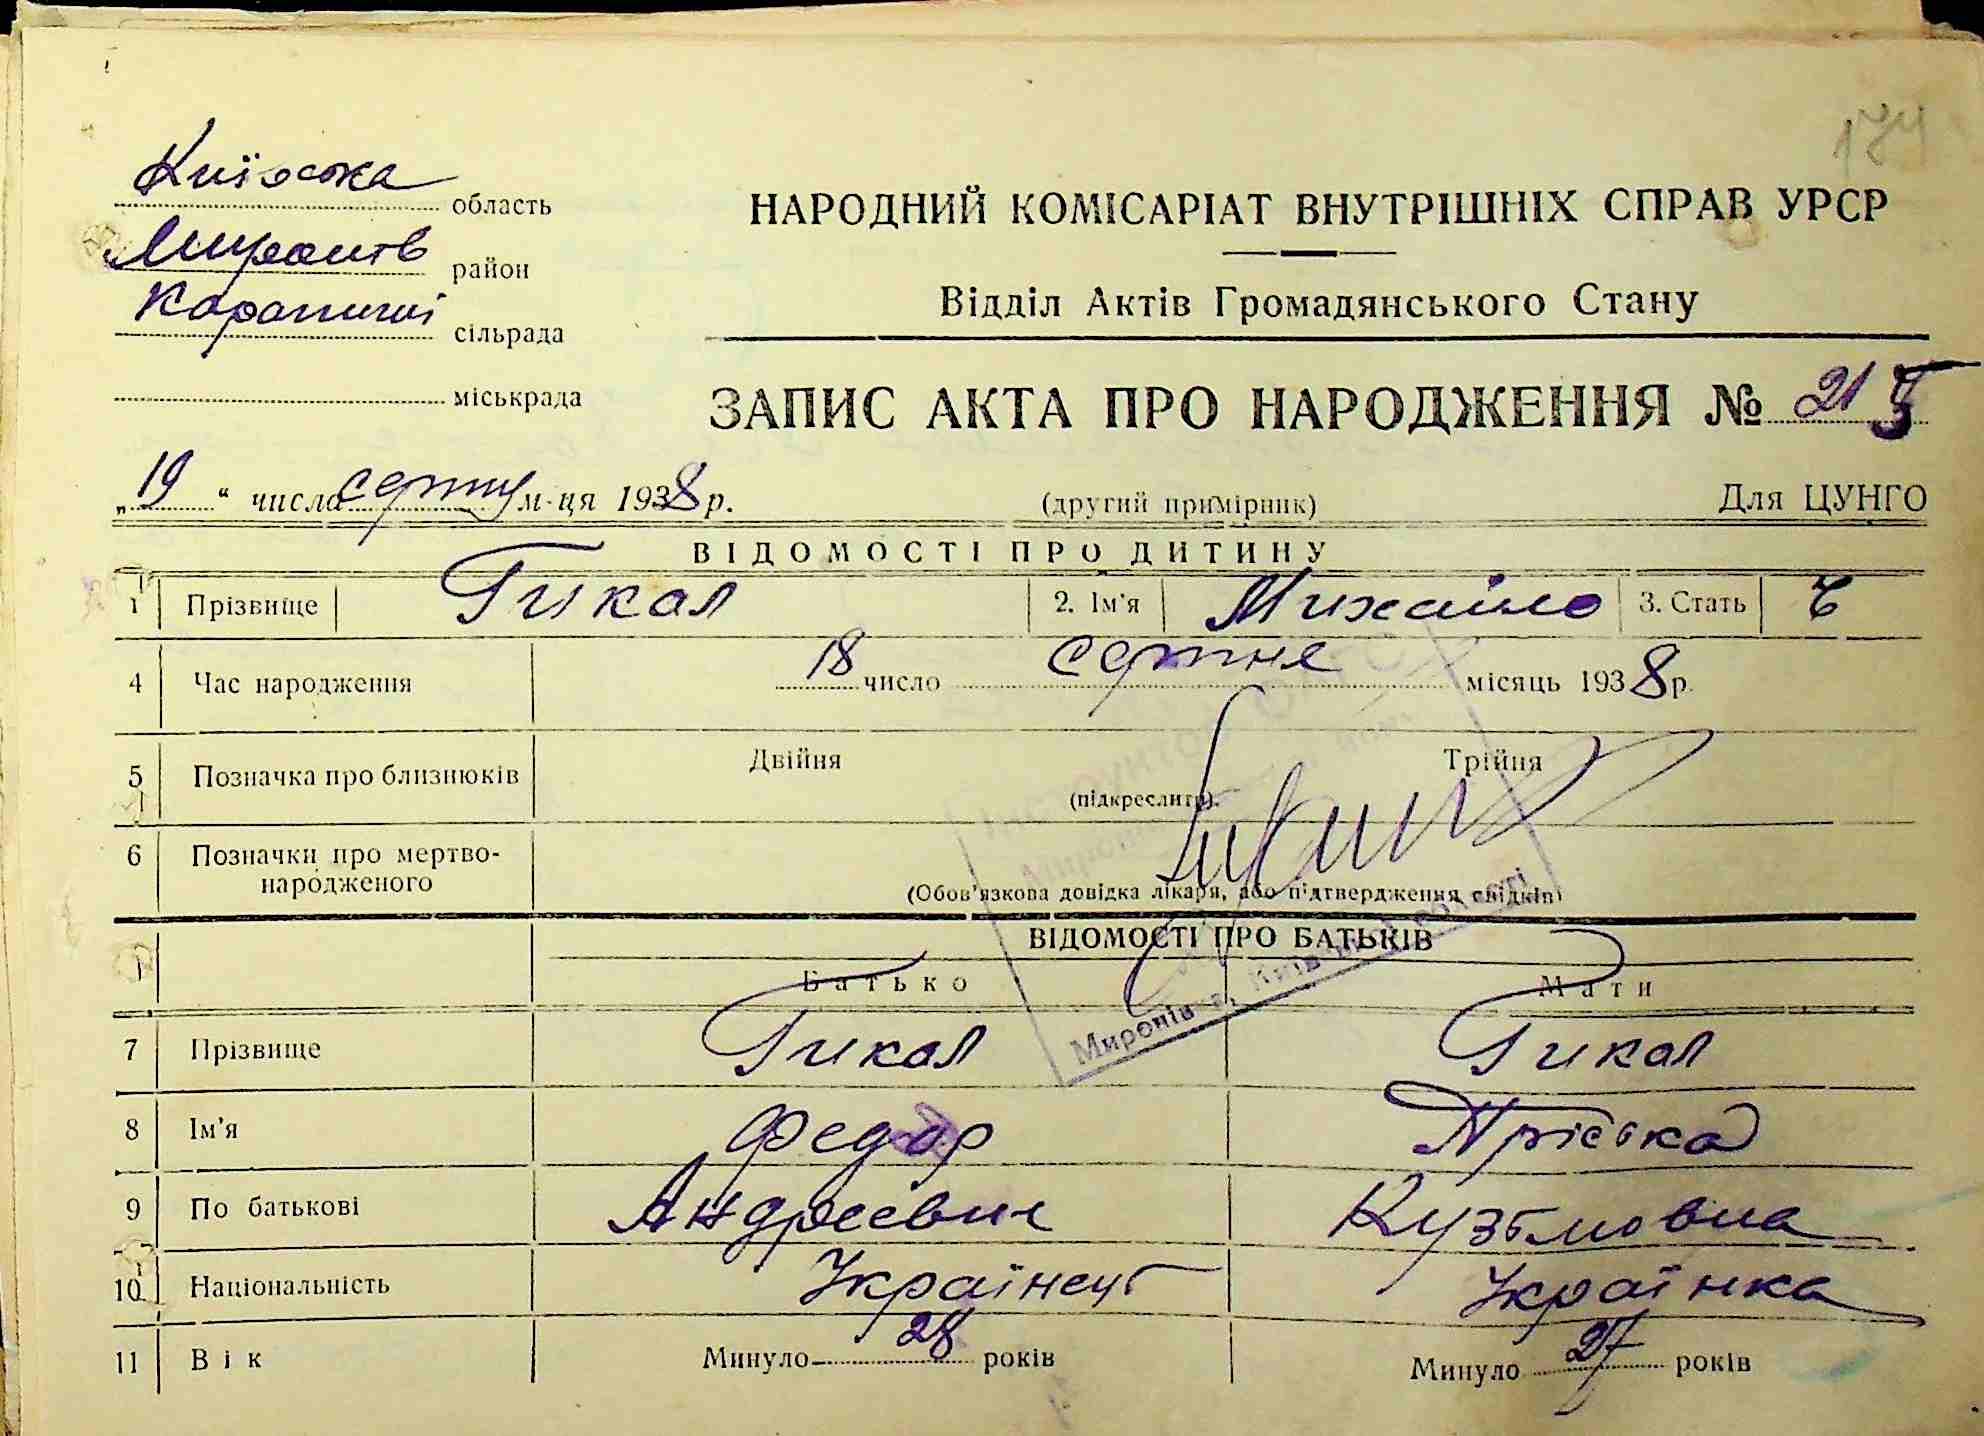 174
Київська область
Миронів район
Карапиші сільрада
міськрада
НАРОДНИЙ КОМІСАРІАТ ВНУТРІШНІХ СПРАВ УРСР
Відділ Актів Громадянського Стану
ЗАПИС АКТА ПРО НАРОДЖЕННЯ № 215
„19“ числа серпня м-ця 1938 р.
(другий примірник)
Для ЦУНГО
ВІДОМОСТІ ПРО ДИТИНУ
1 Прізвище Гикал 2. Ім'я Михайло 3. Стать ч
4 Час народження 18 число серпня місяць 1938 р.
5 Позначка про близнюків Двійня Трійня
(підкреслити).
6 Позначки про мертво-
народженого
(Обов'язкова довідка лікаря, або підтвердження свідків)
ВІДОМОСТІ ПРО БАТЬКІВ
Батько Мати
Миронівка, Київської області
7 Прізвище Гикал Гикал
8 Ім'я Федор Пріська
9 По батькові Андреевич Кузьмовна
10 Національність Українець Українка
11 Вік Минуло 28 років Минуло 27 років